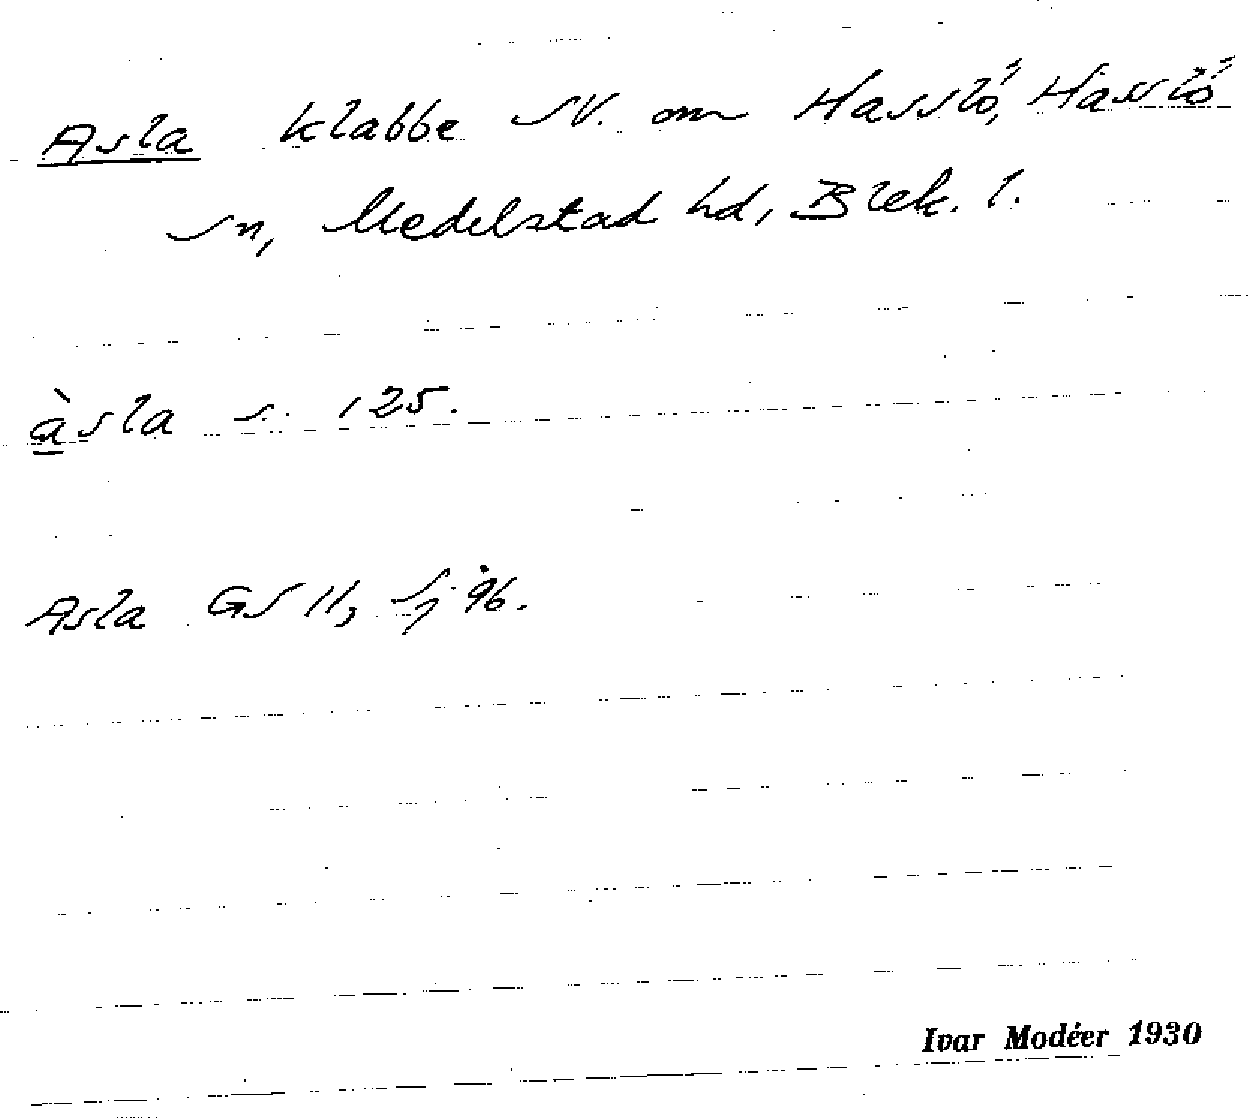 Asla klabbe SV. om Hasslö, Hasslö
sn, Medelstad hd, Blek. l.
àsla s. 125.
Asla GS II, sj 96.
Ivar Modéer 1930